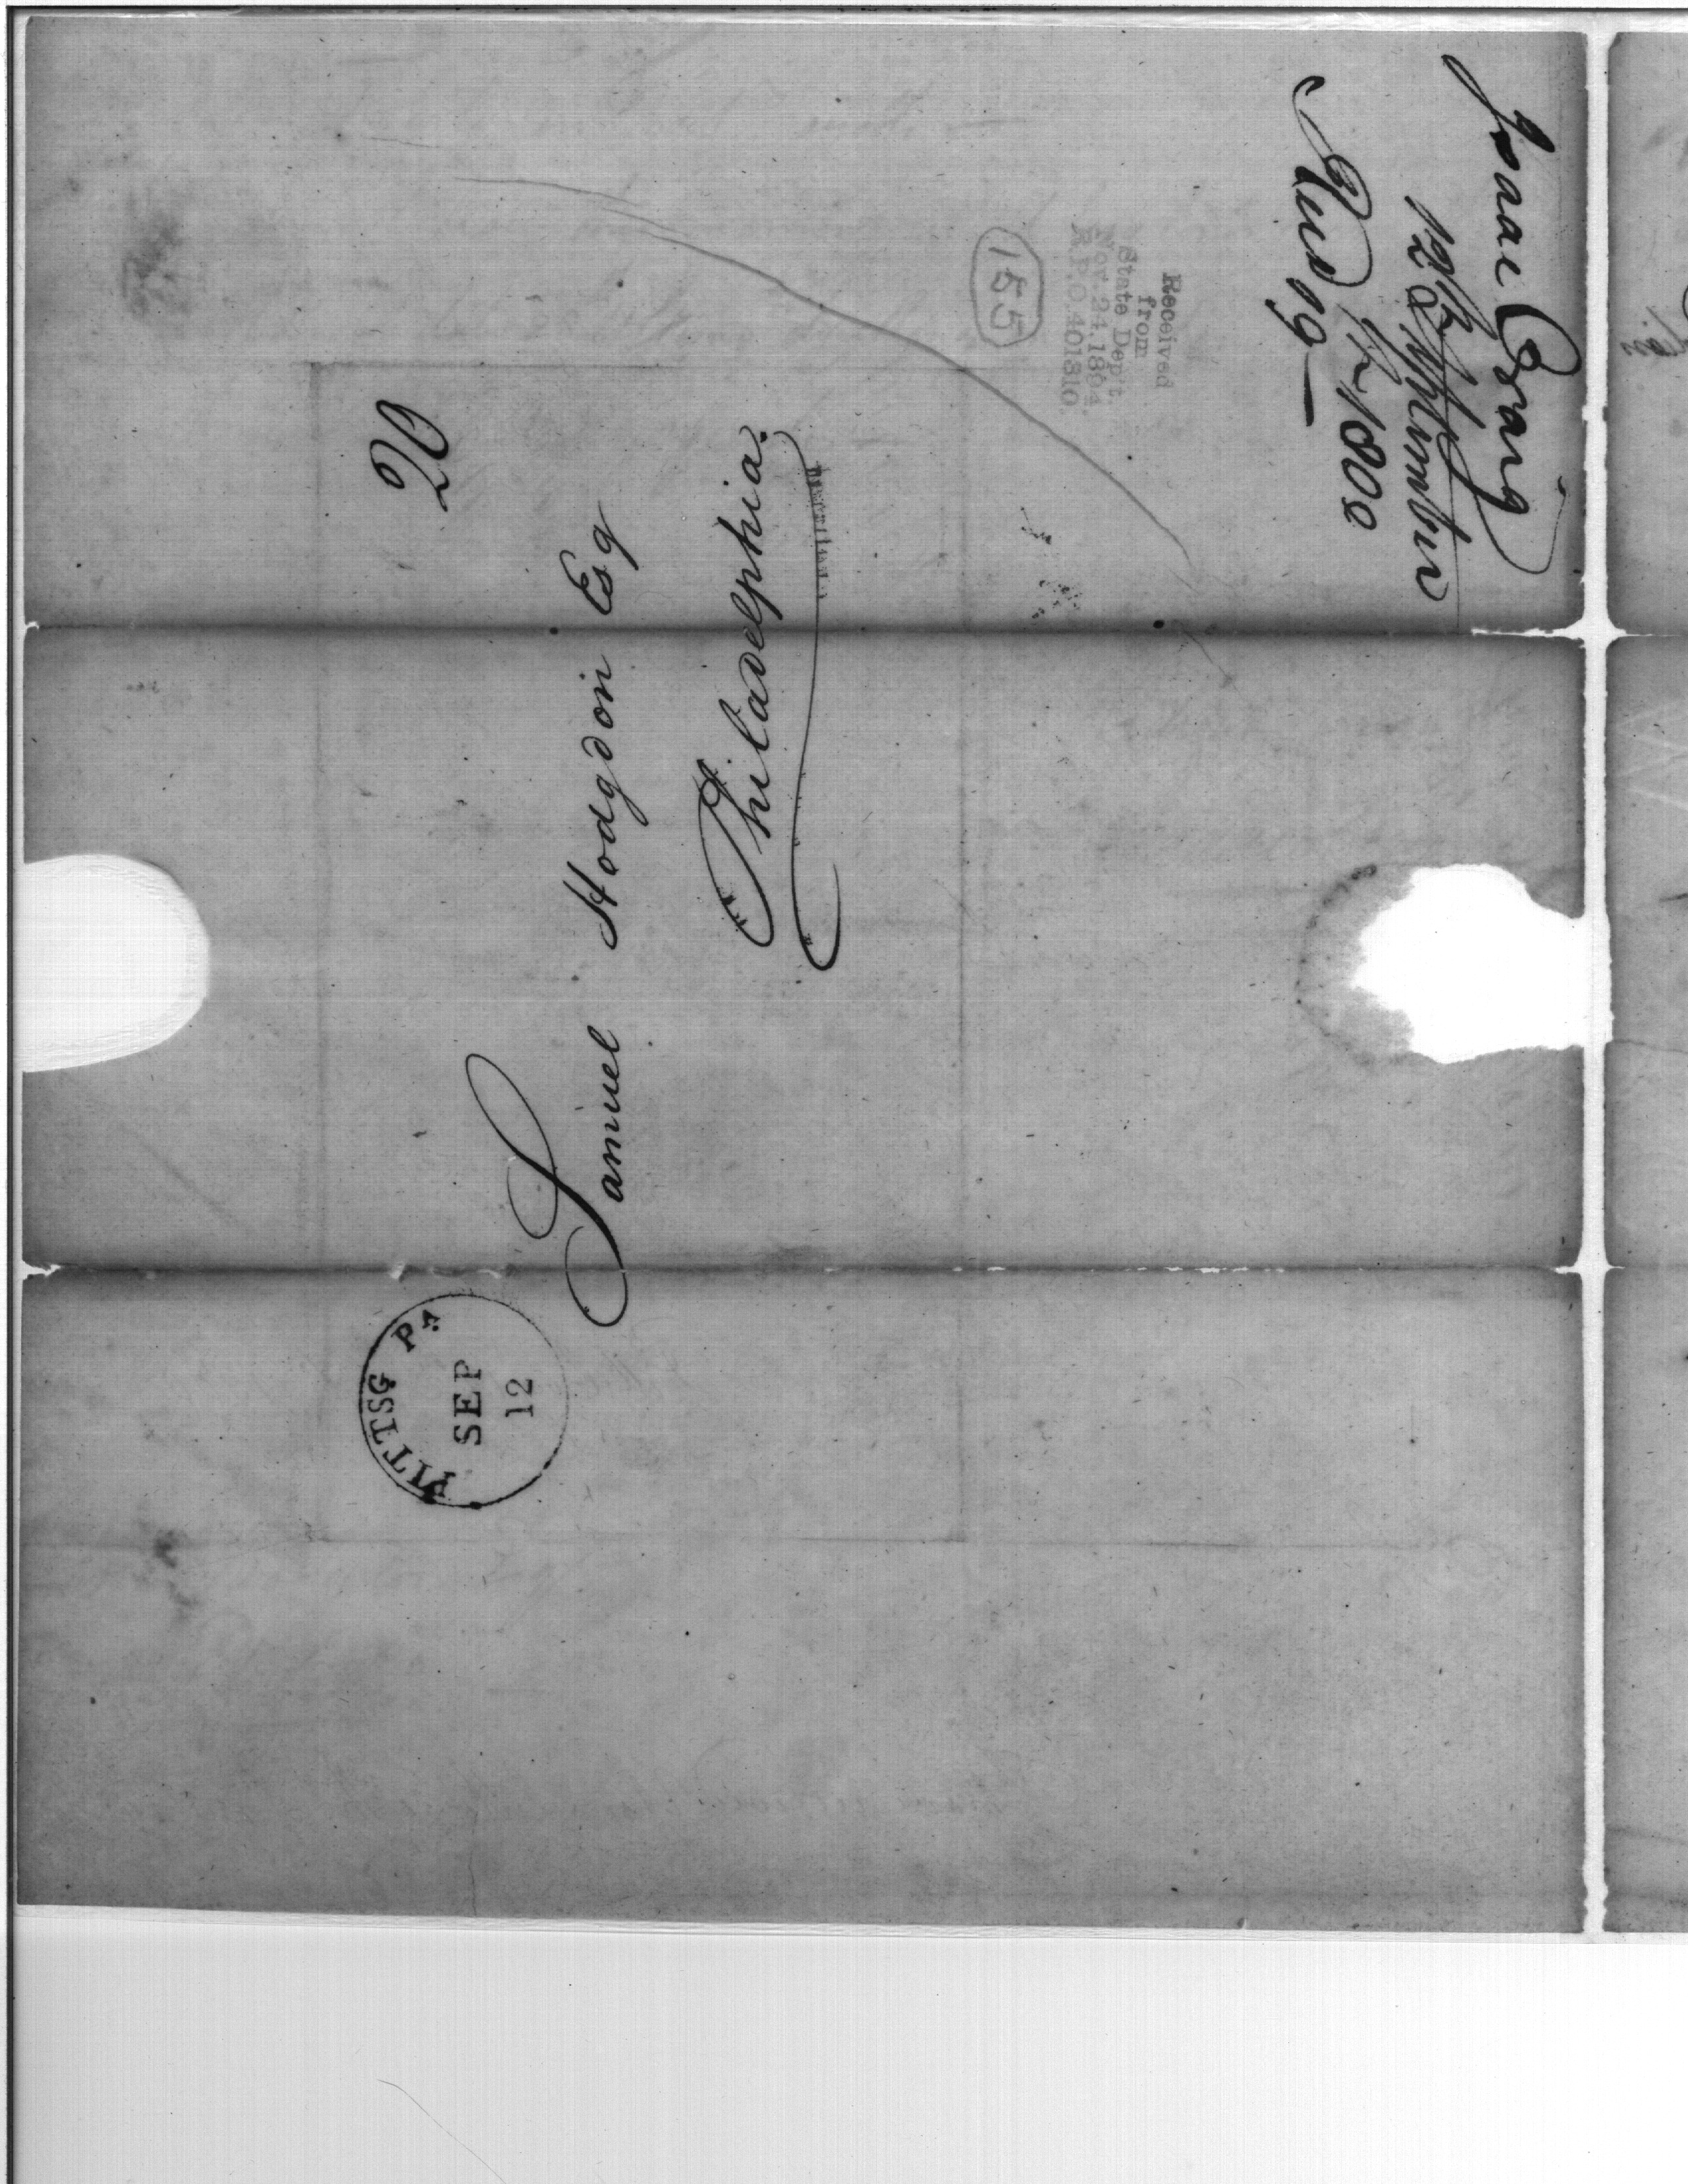 Isaac Craig
12th September
1800
Recd 19—
Received
from
State Dep't.
Nov. 24, 1894.
R.P.O. 401810.
155
20
PITTSG PA
SEP
12
Samuel Hodgdon Esq
Philadelphia.